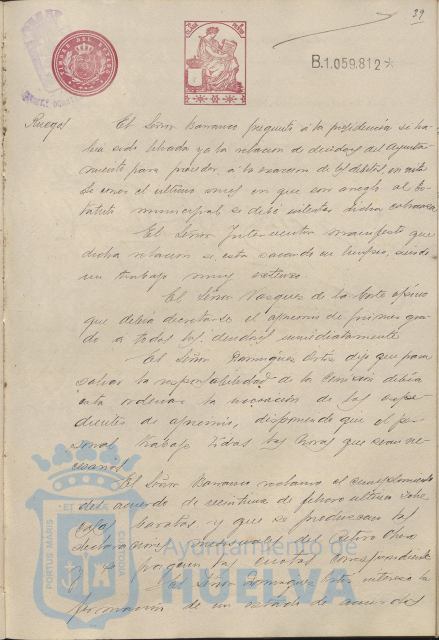 39
TIMBRE DEL ESTADO
B.1.059.812*
Ruegos El Señor Barranco pregunta á la presidencia si ha-
bía sido llevada ya la relacion de deudas del Ayunta-
miento para proceder á la exaccion de los débitos en vista
de ser el ultimo mes en que con arreglo al Es-
tatuto municipal se debe intentar dicha cobranza
El Señor Interventor manifestó que
dicha relacion se está sacando en limpio, siendo
un trabajo muy extenso.
El Señor Vazquez de la Corte opinó
que debia decretarse el apremio de primer gra-
do a todos los deudores inmediatamente
El Señor Dominguez Ortiz dijo que para
salvar la responsabilidad de la Comision debía
esta ordenar la incoacion de los expe-
dientes de apremio, disponiendo que el per-
sonal trabaje todas las horas que sean ne-
cesarias
El Señor Barranco reclama el cumplimiento
del acuerdo de veintiuno de febrero ultimo sobre
casas baratas, y que se produzcan las
declaraciones mensuales del Retiro Obrero
y se paguen las cuotas correspondientes
El Señor Dominguez Ortiz interesa la
formacion de un estado de acuerdos
PORTUS MARIS ET TERRAE CUSTODIA
Ayuntamiento de
HUELVA